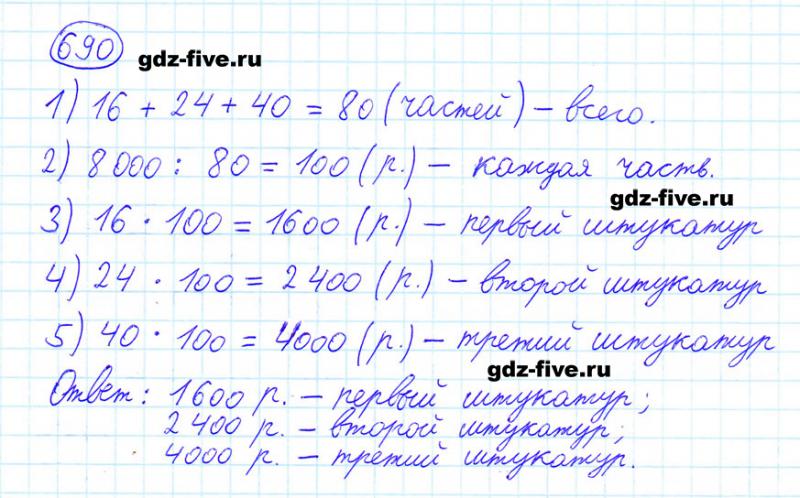 690
gdz-five.ru
1) 16 + 24 + 40 = 80 (частей) – всего.
2) 8 000 : 80 = 100 (р.) – каждая часть.
gdz-five.ru
3) 16 · 100 = 1600 (р.) – первый штукатур
4) 24 · 100 = 2 400 (р.) – второй штукатур
5) 40 · 100 = 4000 (р.) – третий штукатур
gdz-five.ru
Ответ: 1600 р. – первый штукатур;
2 400 р. – второй штукатур;
4000 р. – третий штукатур.